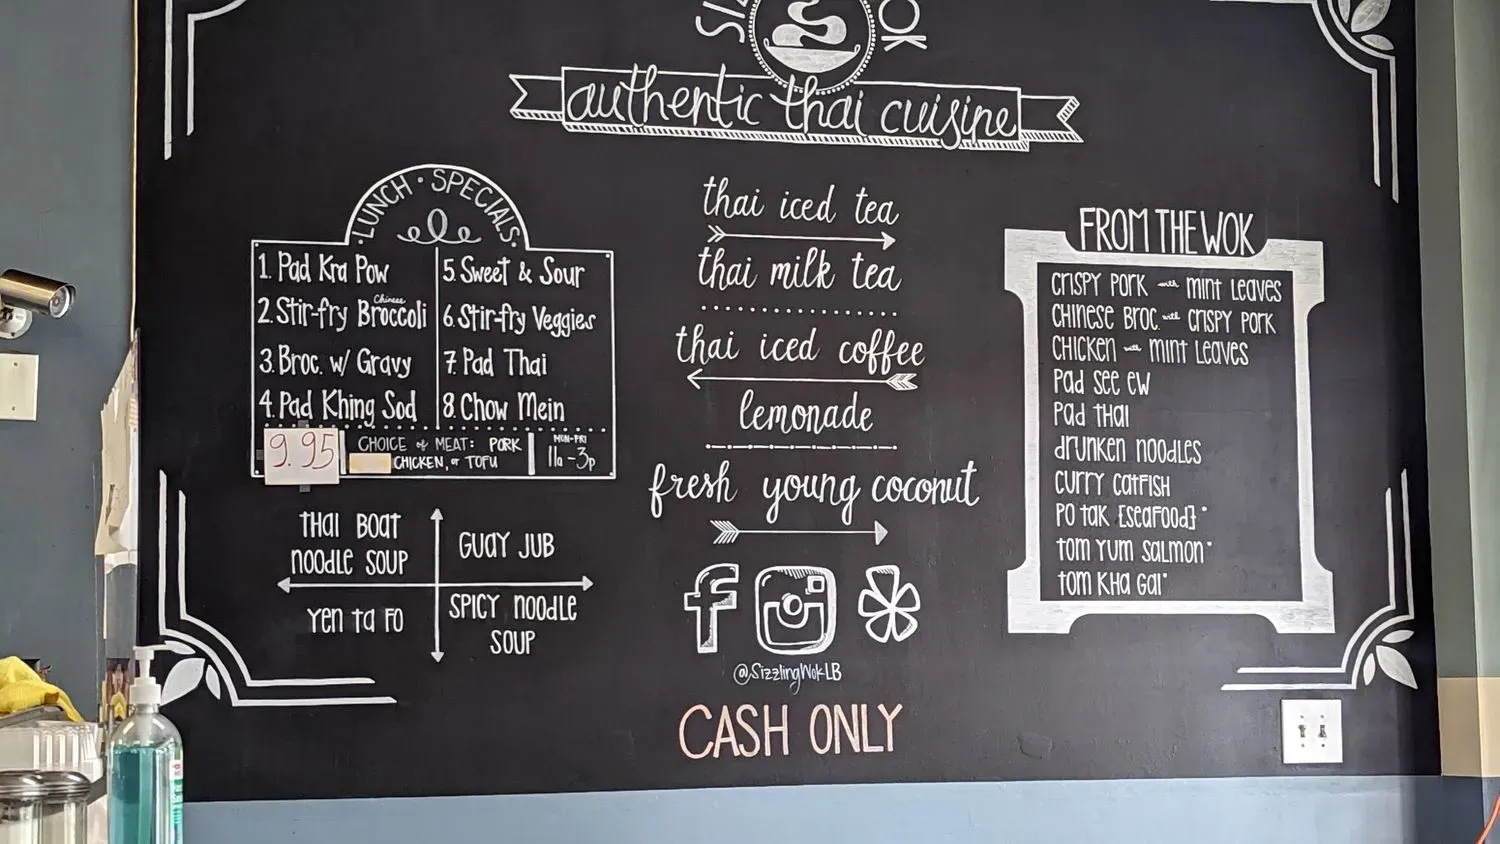 OK
authentic thai cuisine
LUNCH • SPECIALS
1. Pad Kra Pow
2. Stir-fry Chinese Broccoli
3. Broc. w/ Gravy
4. Pad Khing Sod
5. Sweet & Sour
6. Stir-fry Veggies
7. Pad Thai
8. Chow Mein
9.95
CHOICE of MEAT: PORK
CHICKEN, or TOFU
MON-FRI
11a-3p
THAI BOAT
NOODLE SOUP
GUAY JUB
YEN TA FO
SPICY NOODLE
SOUP
thai iced tea
thai milk tea
thai iced coffee
lemonade
fresh young coconut
@SizzlingWokLB
CASH ONLY
FROM THE WOK
CRISPY PORK with MINT LEAVES
CHINESE BROC. with CRISPY PORK
CHICKEN with MINT LEAVES
PAD SEE EW
PAD THAI
DRUNKEN NOODLES
CURRY CATFISH
PO TAK [SEAFOOD]*
TOM YUM SALMON*
TOM KHA GAI*